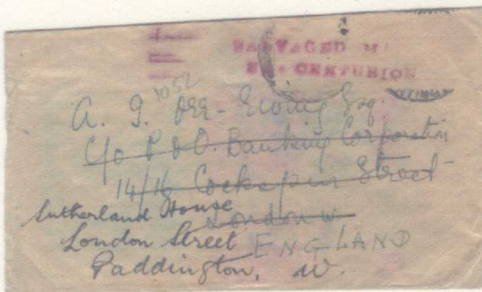 SALVAGED MA
EX. CENTURION
1052
A. J. Orr-Ewing Esq.
C/o P & O. Banking Corporation
14/16 Cockspur Street
Sutherland House
London W.
London Street ENGLAND
Paddington, W.